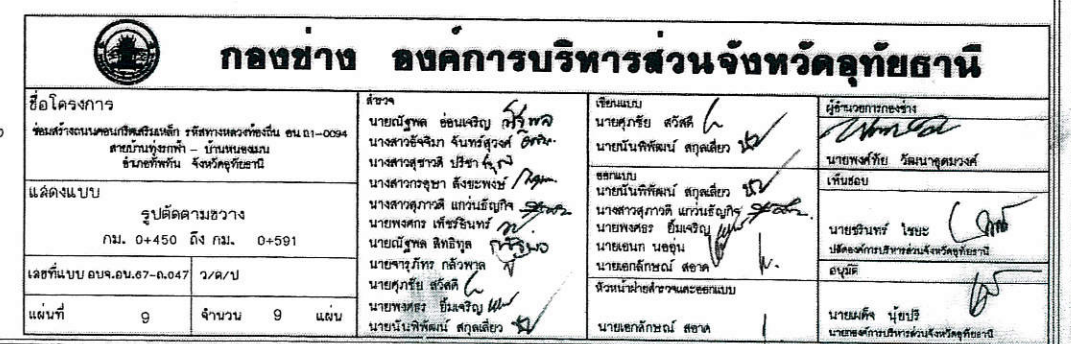 กองช่าง องค์การบริหารส่วนจังหวัดอุทัยธานี
ชื่อโครงการ
ซ่อมสร้างถนนคอนกรีตเสริมเหล็ก รหัสทางหลวงท้องถิ่น อน.ถ1-0094
สายบ้านทุ่งรกฟ้า - บ้านหนองเมน
อำเภอทัพทัน จังหวัดอุทัยธานี
แสดงแบบ
รูปตัดตามขวาง
กม. 0+450 ถึง กม. 0+591
เลขที่แบบ อบจ.อน.67-ถ.047 ว/ด/ป
แผ่นที่ 9 จำนวน 9 แผ่น
สำรวจ
นายณัฐพล อ่อนเจริญ
นางสาวอัจจิมา จันทร์สุวงค์
นางสาวสุชาวดี ปรีชา
นางสาวกรอุษา สังขะพงษ์
นางสาวสุภาวดี แกว่นธัญกิจ
นายพงศกร เพ็ชรอินทร์
นายณัฐพล สิทธิทูล
นายจารุภัทร กลัวพาล
นายศุภชัย สวัสดี
นายพงศธร ยิ้มเจริญ
นายนันพิพัฒน์ สกุลเสี่ยว
เขียนแบบ
นายศุภชัย สวัสดี
นายนันพิพัฒน์ สกุลเสี่ยว
ออกแบบ
นายนันพิพัฒน์ สกุลเสี่ยว
นางสาวสุภาวดี แกว่นธัญกิจ
นายพงศธร ยิ้มเจริญ
นายเอนก นออุ่น
นายเอกลักษณ์ สอาด
หัวหน้าฝ่ายสำรวจและออกแบบ
นายเอกลักษณ์ สอาด
ผู้อำนวยการกองช่าง
นายพงศ์ทัย วัฒนาอุดมวงศ์
เห็นชอบ
นายชรินทร์ ไชยะ
ปลัดองค์การบริหารส่วนจังหวัดอุทัยธานี
อนุมัติ
นายเผด็จ นุ้ยปรี
นายกองค์การบริหารส่วนจังหวัดอุทัยธานี